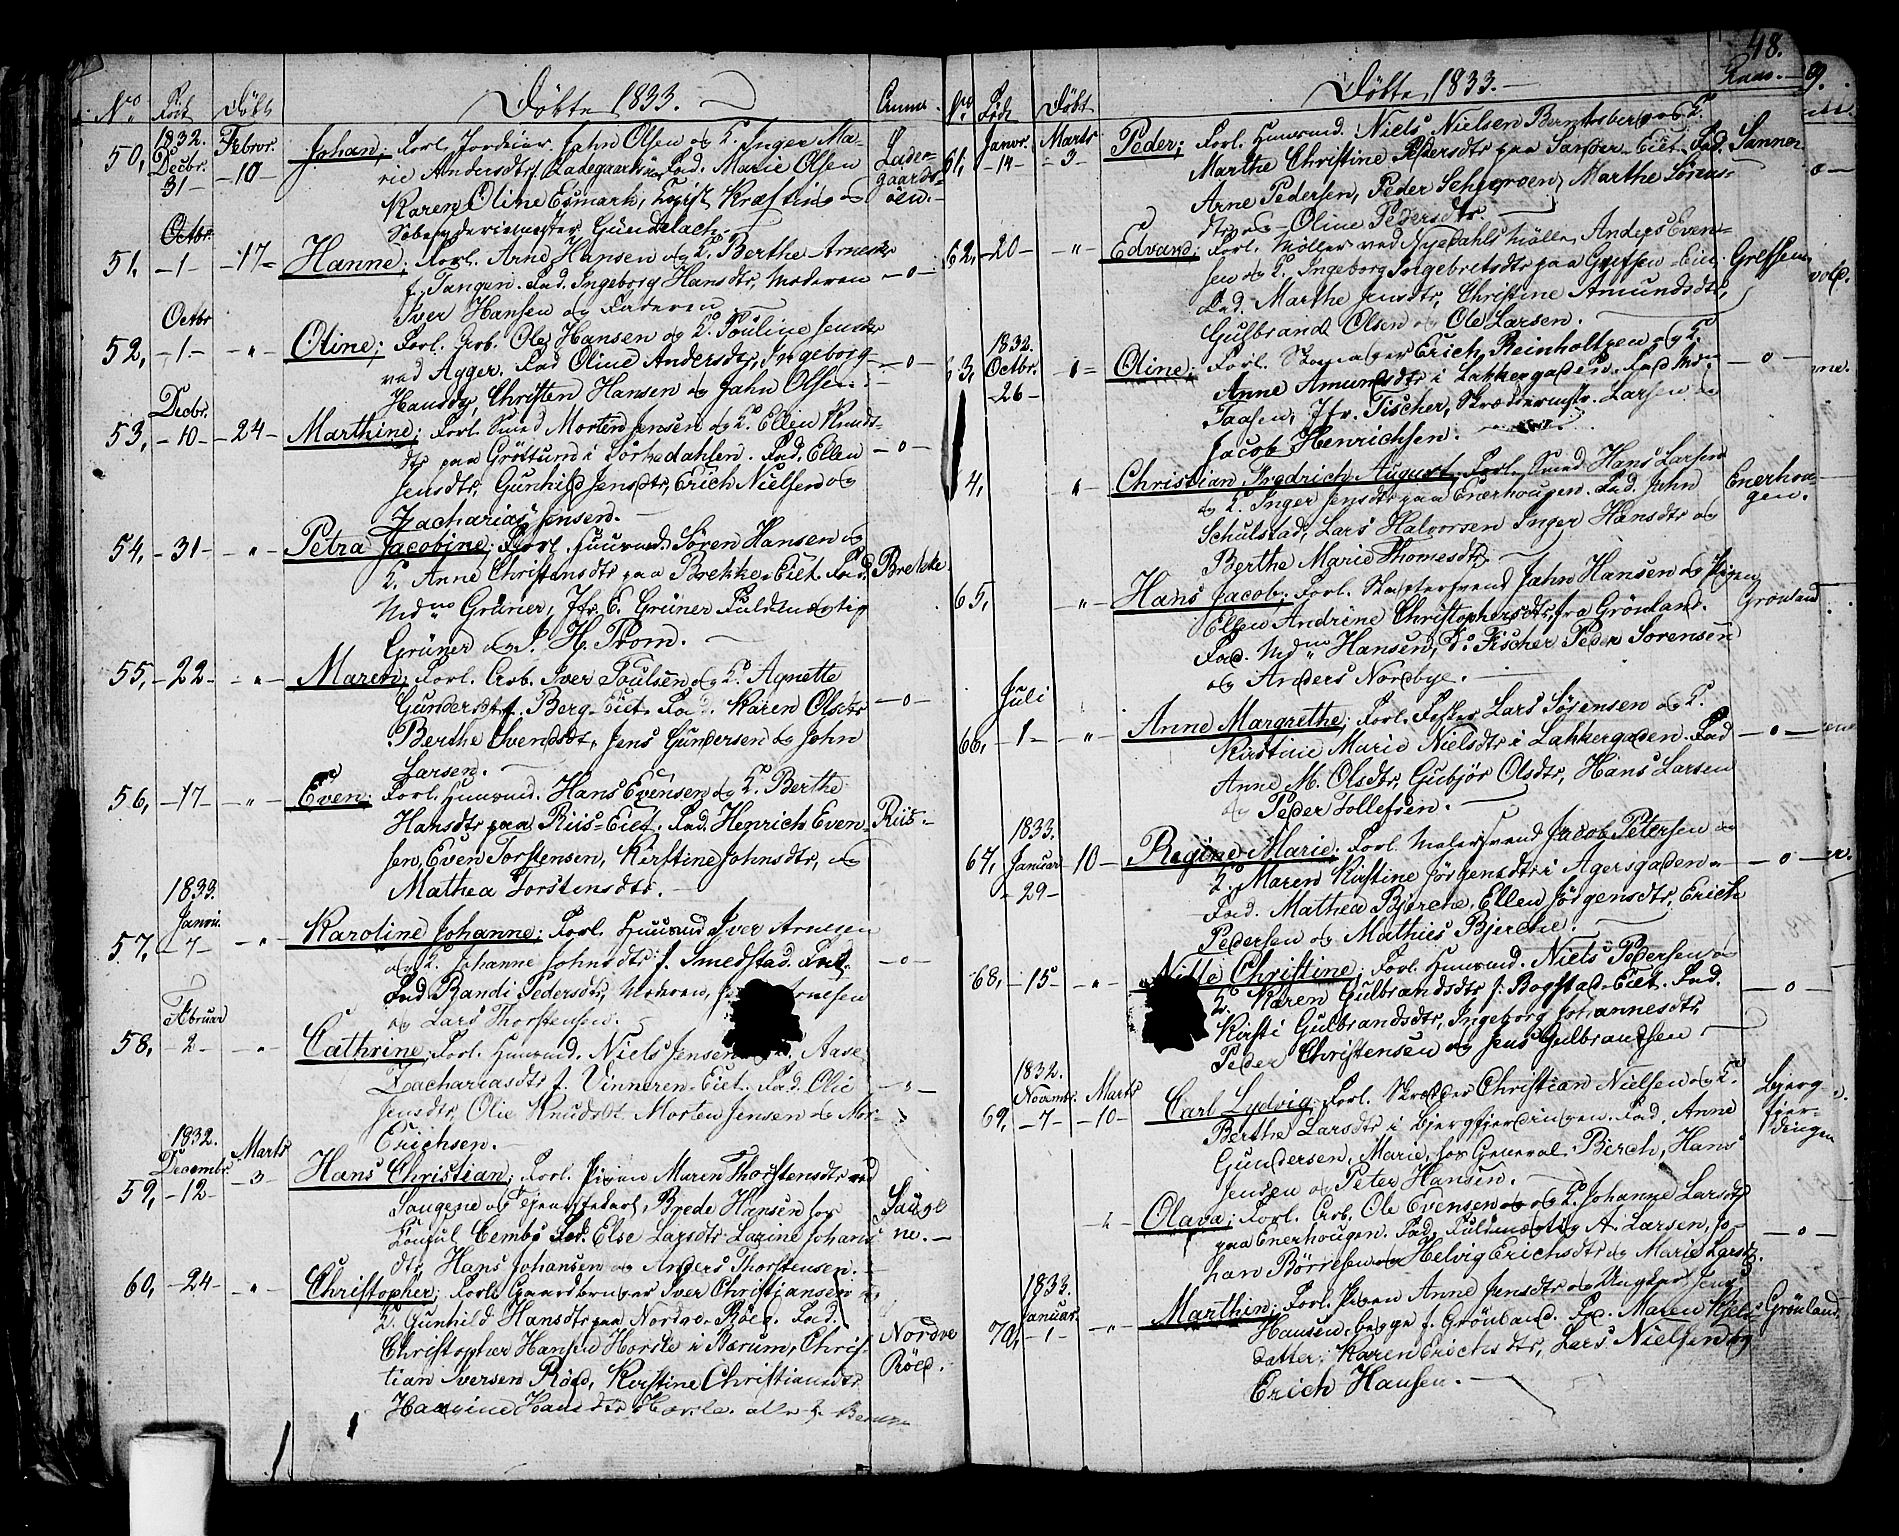 No Født Döbt Döbte 1833. Anm.
50, 1832. Decbr. 31 Febror. 10 Johan; Forl. Jordeier John Olsen og K. Inger Ma-
rie Andersdtr Ladegaardsöen Fad. Marie Olsen
Karen Oline Esmark,
Gundelach. Lade-
gaards-
öen.
51, Octbr. -1- -17- Hanne; Forl. Arne Hansen og K. Berthe Arnesdtr
f. Tangen. Fad. Ingeborg Hansdtr, Moderen
Iver Hansen og Faderen -o-
52, Octbr -1- - " Oline; Forl. Arb. Ole Hansen og K. Pouline Jensdtr
ved Agger. Fad Oline Andersdtr, Ingeborg
Hansdtr, Christen Hansen og John Olsen. -o-
53, Decbr. -10- -24- Marthine; Forl. Smed Morten Jensen og K. Ellen Knuds-
dtr paa Gröttum i Sörkedahlen. Fad. Ellen
Jensdtr, Gunhild Jensdtr, Erich Nielsen og
Zacharias Jensen. -o-
54, -31- - " - Petra Jacobine; Forl. Huusmd. Sören Hansen og
K. Anne Christensdtr paa Brekke-Eiet. Fad.
Mdme Grüner, Jfr. E. Grüner Fuldmægtig
Grüner og J. H. Trom. Brekke
55, -22- - " - Maren; Forl. Arb. Iver Poulsen og K. Agnette
Gundersdtr f. Berg-Eiet. Fad. Karen Olsdtr
Berthe Svendsdtr, Jens Gundersen og John
Larsen. -o-
56, -17- - " - Even; Forl. Huusmd. Hans Evensen og K. Berthe
Hansdtr paa Riis-Eiet. Fad. Henrich Even-
sen, Even Torstensen, Kirstine Johnsdtr, og
Mathea Torstensdtr. Riis.
57, 1833. Janvr. -7- - " - Karoline Johanne; Forl. Huusmd Iver Arnesen
og K. Johanne Johnsdtr f. Smedstad.
Fad Randi Pedersdtr, Moderen, Arnesen
og Lars Thorstensen. -o-
58, Februar -2- - " - Cathrine; Forl. Huusmd. Niels Jensen Aase
Zachariasdtr f. Vinneren-Eiet. Fad. Olie
Jensdtr, Olie Knudsdt. Morten Jensen og
Erichsen. -"-
59, 1832. Decembr. -12- Marts -3- Hans Christian; Forl. Pigen Maren Thorstensdtr ved
Saugene og Tjenestekarl, Brede Hansen hos
Consul Fad. Else Larsdtr. Johans
dtr, Hans Johansen og Anders Thorstensen. Sauge
ne.
60, -24- - " - Christopher; Forl. Gaardbruger Iver Christiansen og
K. Gunhild Hansdtr paa Nordre-Röed. Fad.
Christopher Hansen Horsle i Nærum, Chris-
tian Iversen Röed, Kirstine Christiansdtr
Hansdtr Horsle. alle f. Nordre
Röed.
48.
No Födt Döbt Döbte 1833.
61, Janvr. -14- Marts -3- Peder; Forl. Huusmd. Niels Nielsen og K.
Marthe Christine Pedersdtr paa Eiet. Fad.
Arne Pedersen, Peder Marthe Sörens-
dtr og Oline Pedersdtr. Sanner
62, -20- " Edvard; Forl. Möller ved Nyedahls Mölle, Anders Even-
sen og K. Ingeborg Ingebretsdtr paa Grefsen-Eiet.
Fad. Marthe Jensdtr, Christine Amundsdtr,
Gulbrand Olsen og Ole Larsen. Grefsen
63, 1832. Octbr. -26- Oline; Forl. Skomager Erich Reinholtzen og K.
Anne Amundsdtr i Lakkegaden. Fad
Taasen, Jfr. Fischer, Skræddermstr. Larsen og
Jacob Henrichsen. -o-
4, " Christian Fredrich August, Forl. Smed Hans Larsen
og K. Inger Jensdtr paa Enerhougen. Fad. John
Schulstad, Lars Halvorsen Inger Hansdtr og
Berthe Marie Thomesdtr. Enerhou-
gen.
65, " Hans Jacob; Forl. John Hansen og Pigen
Ellen Andrine Christophersdtr, fra Grönland.
Fad. Mdme Hansen, do Fischer Peder Sorensen
og Anders Nordbye. Grönland
66, Juli -1- " Anne Margrethe; Forl. Lars Sörensen og K.
Kirstine Marie Nielsdtr i Lakkegaden. Fad
Anne M. Olsdtr, Gubjör Olsdtr, Hans Larsen
og Peder Tollefsen. -o-
67, 1833. Januar -29- 10 Regine Marie. Forl. Malersvend Jacob Petersen og
K. Maren Kirstine Jörgensdtr i Agersgaden
Fad. Mathea Bjerche, Ellen Jörgensdtr, Erich
Pedersen og Mathies Bjerche. -o-
68, -15- " Christine; Forl. Huusmd. Niels Pedersen og
K. Karen Gulbrandsdtr f. Bogstad-Eiet. Fad.
Kirsti Gulbrandsdtr, Ingeborg Johannesdtr,
Peder Christensen og Jens Gulbrandsen -o-
69, 1832. Novembr. -7- Marts -10- Carl Ludvig; Forl. Skræder Christian Nielsen og K.
Berthe Larsdtr i Bjergfjerdingen. Fad. Anne
Gundersen, Marie, hos General Bierch, Hans
Jensen og Peter Hansen. Bjerg-
fjer-
dingen
Olava; Forl. Arb. Ole Evensen og K. Johanne Larsdtr
paa Enerhougen. Fad. Fuldmægtig A. Larsen, Jo-
han Börresen Helvig Erichsdtr og Marie Larsdtr. -o-
70, 1833. Januar. -1- " Marthin; Forl. Pigen Anne Jensdtr og Ungkar Jens
Hansen, begge f. Grönland. Fad. Maren Niels
datter, Karen Erichsdtr, Lars Nielsen og
Erich Hansen. Grönland.